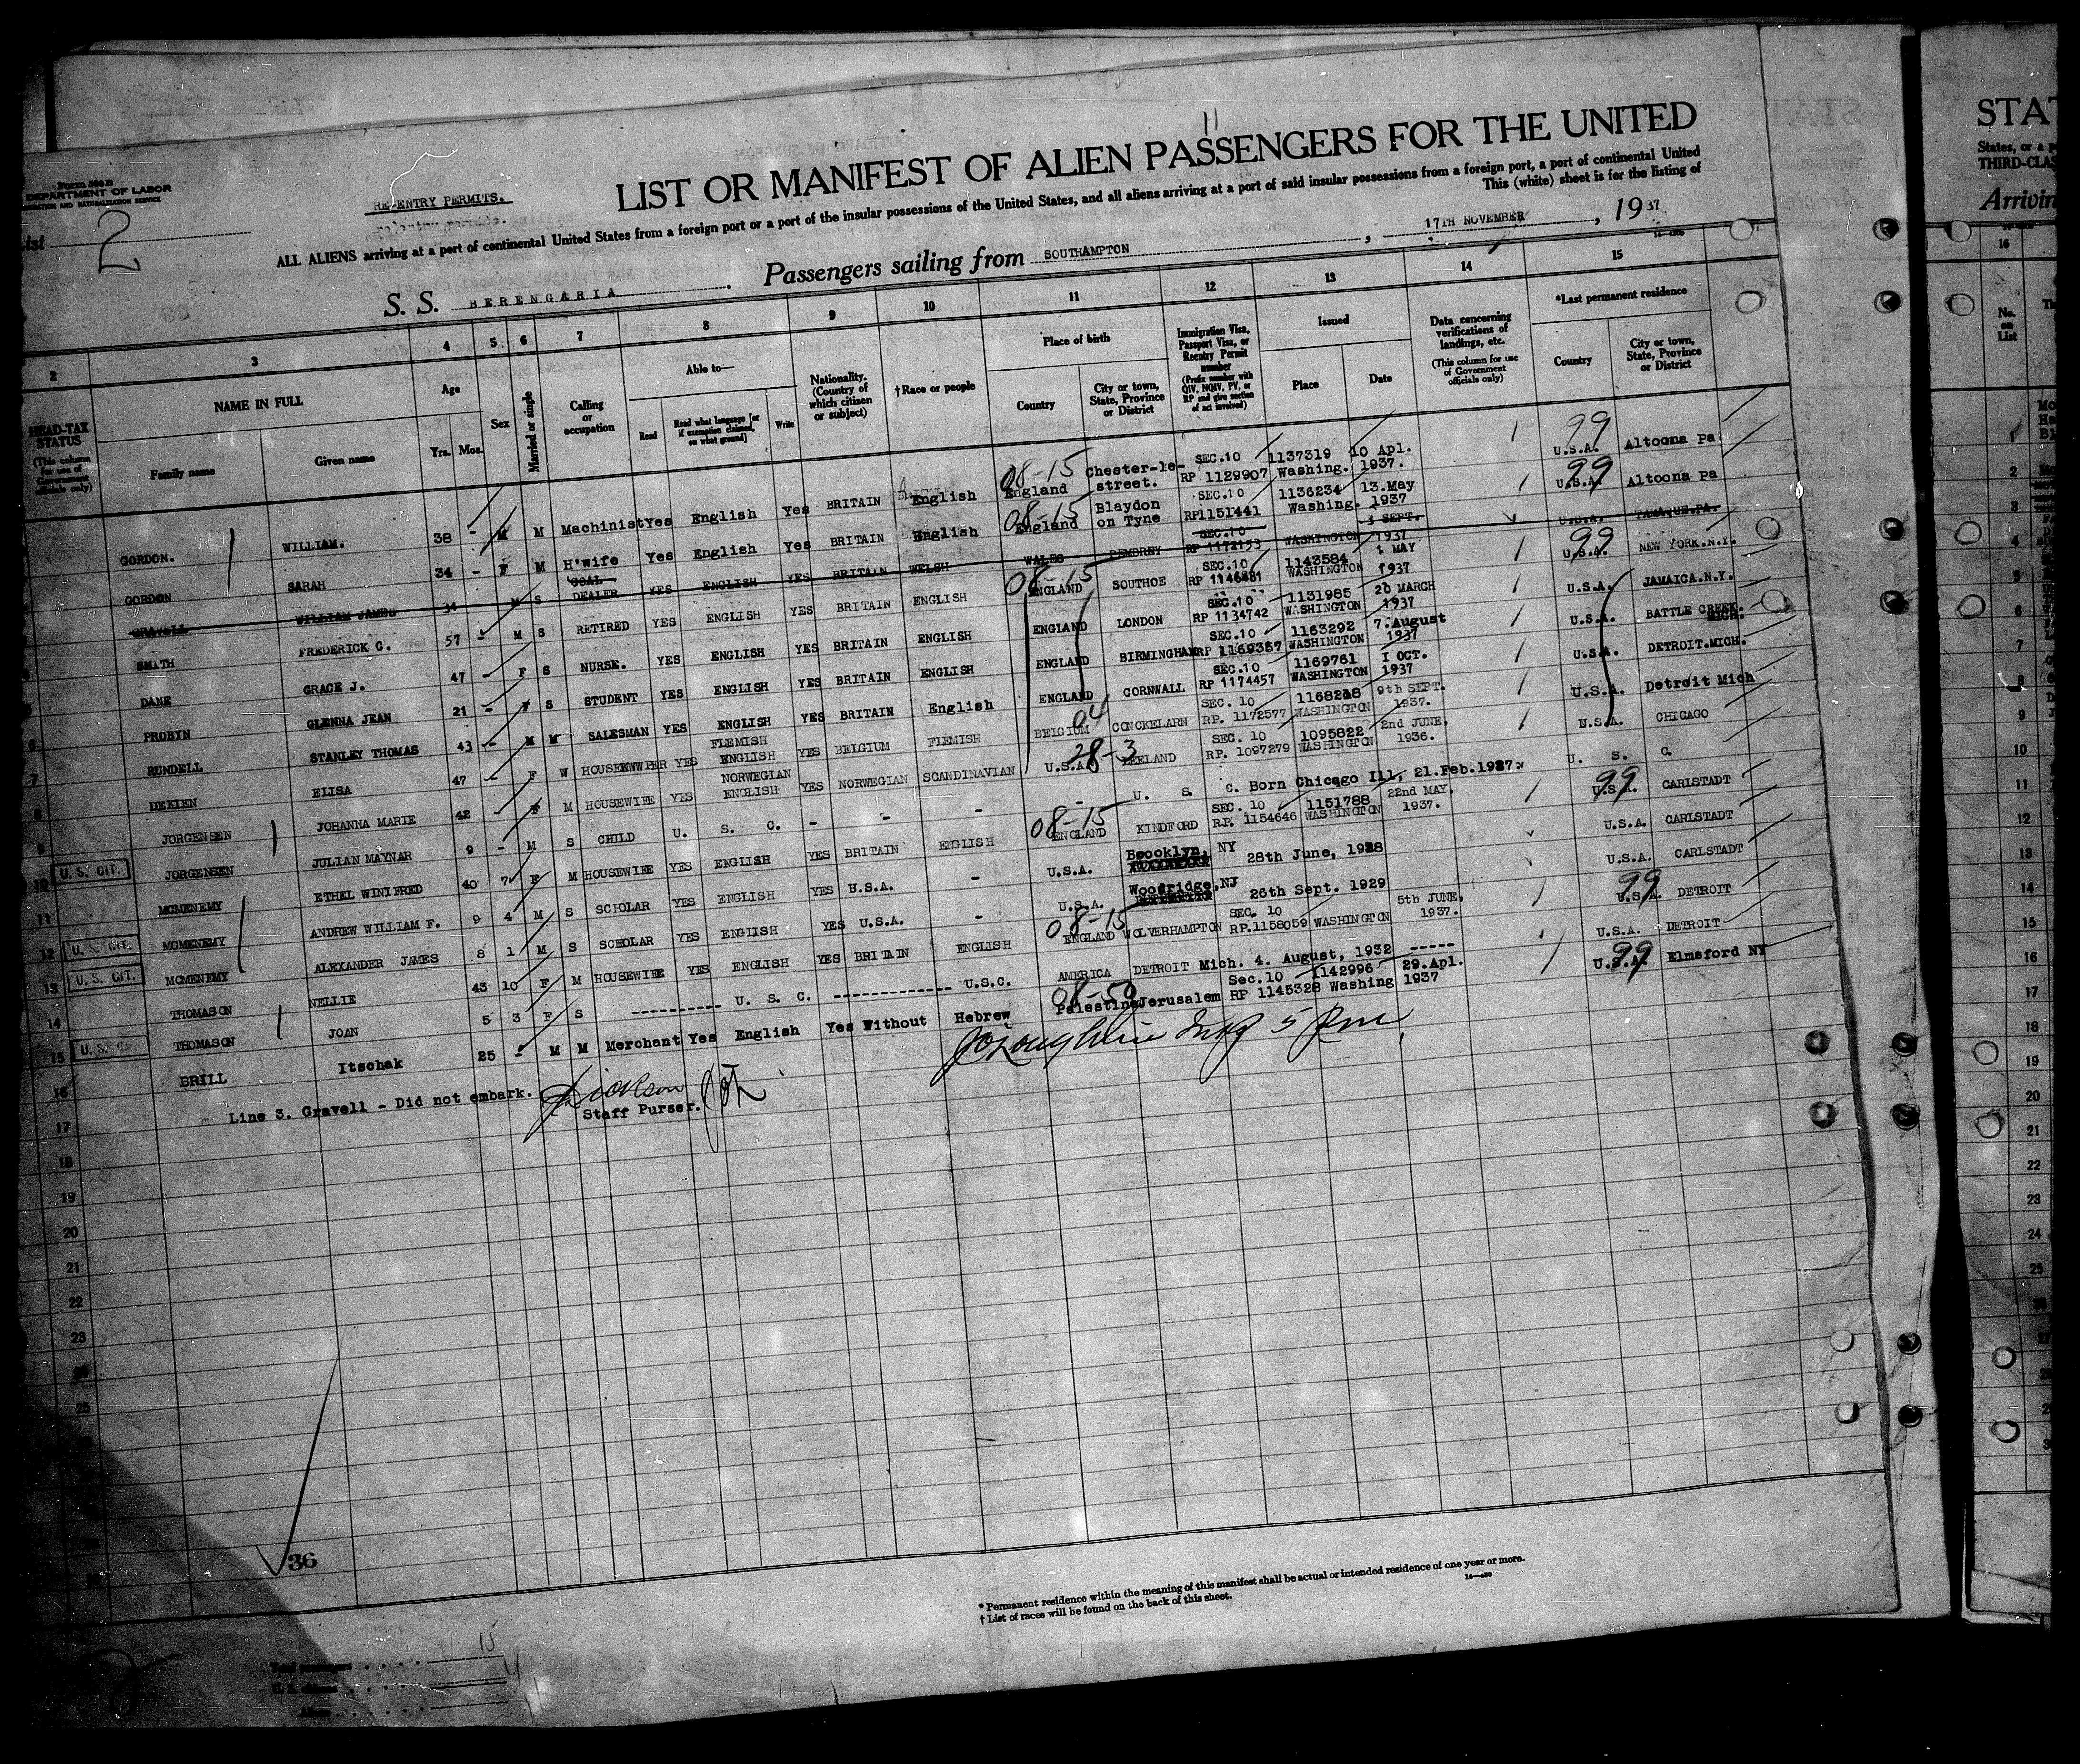 11
Form 500 B
DEPARTMENT OF LABOR
IMMIGRATION AND NATURALIZATION SERVICE
RE-ENTRY PERMITS.
LIST OR MANIFEST OF ALIEN PASSENGERS FOR THE UNITED
List 2
ALL ALIENS arriving at a port of continental United States from a foreign port or a port of the insular possessions of the United States, and all aliens arriving at a port of said insular possessions from a foreign port, a port of continental United
This (white) sheet is for the listing of
S. S. BERENGARIA. Passengers sailing from SOUTHAMPTON, 17TH NOVEMBER, 1937
2 3 4 5 6 7 8 9 10 11 12 13 14 15
HEAD-TAX STATUS (This column for use of Government officials only)
NAME IN FULL
Family name
Given name
Age
Yrs. Mos.
Sex
Married or single
Calling or occupation
Able to—
Read
Read what language [or if exemption claimed, on what ground]
Write
Nationality. (Country of which citizen or subject)
†Race or people
Place of birth
Country
City or town, State, Province or District
Immigration Visa, Passport Visa, or Reentry Permit number
(Prefix number with QIV, NQIV, PV, or RP and give section of act involved)
Issued
Place
Date
Data concerning verifications of landings, etc.
(This column for use of Government officials only)
*Last permanent residence
Country
City or town, State, Province or District
GORDON. WILLIAM. 38 - M M Machinist Yes English Yes BRITAIN English 08-15 England Chester-le-street. SEC.10 RP 1129907 1137319 Washing. 10 Apl. 1937. 99 U.S.A. Altoona Pa
GORDON SARAH 34 - F M H'wife Yes English Yes BRITAIN English 08-15 England Blaydon on Tyne SEC.10 RP1151441 1136234 Washing. 13.May 1937 99 U.S.A. Altoona Pa
GRAVELL WILLIAM JAMES 34 - M S COAL DEALER YES ENGLISH YES BRITAIN WELSH WALES PEMBREY SEC.10 RP 1172153 WASHINGTON 3 SEPT. 1937 U.S.A. TAMAQUA.PA.
SMITH FREDERICK C. 57 - M S RETIRED YES ENGLISH YES BRITAIN ENGLISH 08-15 ENGLAND SOUTHOE SEC.10 RP 1146481 1143584 WASHINGTON 1 MAY 1937 99 U.S.A. NEW YORK.N.Y.
DANE GRACE J. 47 - F S NURSE. YES ENGLISH YES BRITAIN ENGLISH ENGLAND LONDON SEC.10 RP 1134742 1131985 WASHINGTON 20 MARCH 1937 U.S.A. JAMAICA.N.Y.
PROBYN GLENNA JEAN 21 - F S STUDENT YES ENGLISH YES BRITAIN ENGLISH ENGLAND BIRMINGHAM SEC.10 RP 1169357 1163292 WASHINGTON 7.August 1937 U.S.A. BATTLE CREEK. MICH.
7 RUNDELL STANLEY THOMAS 43 - M M SALESMAN YES ENGLISH YES BRITAIN English ENGLAND CORNWALL SEC.10 RP 1174457 1169761 WASHINGTON 1 OCT. 1937 U.S.A. DETROIT.MICH.
8 DEKIEN ELISA 47 - F W YES FLEMISH ENGLISH YES BELGIUM FLEMISH 04 BELGIUM CONCKELARN SEC. 10 RP. 1172577 1168218 WASHINGTON 9th SEPT. 1937. U.S.A. Detroit Mich
9 JORGENSEN JOHANNA MARIE 42 - F M HOUSEWIFE YES NORWEGIAN ENGLISH YES NORWEGIAN SCANDINAVIAN 28-3 U.S.A. SEC. 10 RP. 1097279 1095822 WASHINGTON 2nd JUNE, 1936. U.S.A. CHICAGO
10 U. S. CIT. JORGENSEN JULIAN MAYNAR 9 - M S CHILD U. S. C. - - - - U. S. C. Born Chicago Ill, 21.Feb.1927. U. S. C.
11 MCMENEMY ETHEL WINIFRED 40 7 F M HOUSEWIFE YES ENGLISH YES BRITAIN ENGLISH 08-15 ENGLAND KINDFORD SEC. 10 RP. 1154646 1151788 WASHINGTON 22nd MAY, 1937. 99 U.S.A. CARLSTADT
12 U. S. CIT. MCMENEMY ANDREW WILLIAM F. 9 4 M S SCHOLAR YES ENGLISH YES U.S.A. - U.S.A. Brooklyn, NY 28th June, 1928 U.S.A. CARLSTADT
13 U. S. CIT. MCMENEMY ALEXANDER JAMES 8 1 M S SCHOLAR YES ENGLISH YES U.S.A. - U.S.A. Woodridge, NJ 26th Sept. 1929 U.S.A. CARLSTADT
14 THOMASON NELLIE 43 10 F M HOUSEWIFE YES ENGLISH YES BRITAIN ENGLISH 08-15 ENGLAND WOLVERHAMPTON SEC. 10 RP.1158059 WASHINGTON 5th JUNE, 1937. 99 U.S.A. DETROIT
15 U. S. CIT. THOMASON JOAN 5 3 F S ---------- U. S. C. ------------- U.S.C. AMERICA DETROIT Mich. 4. August, 1932 ----- U.S.A. DETROIT
16 BRILL Itschak 25 - M M Merchant Yes English Yes Without Hebrew 08-50 Palestine Jerusalem Sec.10 RP 1145328 1142996 Washing 29.Apl. 1937 99 U.S.A. Elmsford NY
Line 3. Gravell - Did not embark. Dickson
Staff Purser.
17
18
19
20
21
22
23
24
25
36
* Permanent residence within the meaning of this manifest shall be actual or intended residence of one year or more.
† List of races will be found on the back of this sheet.
14—430
Total passengers 15
U. S. citizens 4
Aliens
STAT
THIRD-CLAS
16
No. on List
1
2
3
4
5
6
7
8
9
10
11
12
13
14
15
16
17
18
19
20
21
22
23
24
25